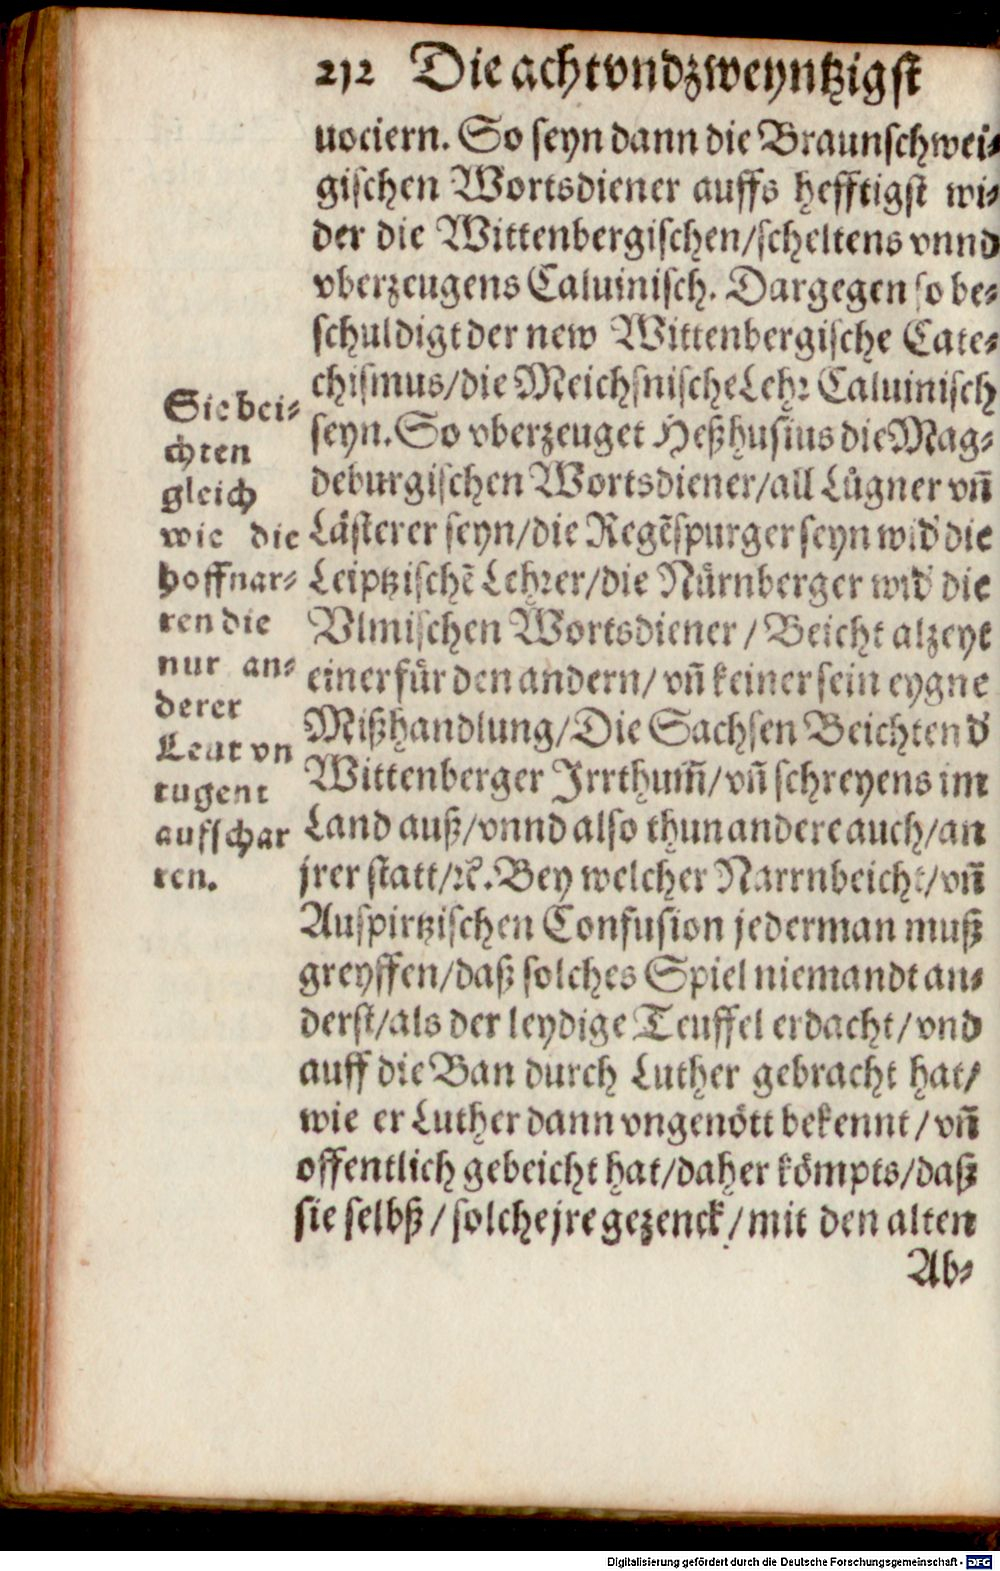 212 Die achtvndzweyntzigst
uociern. So seyn dann die Braunschwei⸗
gischen Wortsdiener auffs hefftigst wi⸗
der die Wittenbergischen/scheltens vnnd
vberzeugens Caluinisch. Dargegen so be⸗
schuldigt der new Wittenbergische Cate⸗
chismus/die Meichsnische Lehr Caluinisch
seyn. So vberzeuget Heßhusius die Mag⸗
deburgischen Wortsdiener/all Lůgner vñ
Lästerer seyn/die Regẽspurger seyn wid' die
Leiptzischẽ Lehrer/die Nůrnberger wid' die
Vlmischen Wortsdiener / Beicht alzeyt
einer fůr den andern/ vñ keiner sein eygne
Mißhandlung/Die Sachsen Beichten d'
Wittenberger Irrthum̃/vñ schreyens im
Land auß/vnnd also thun andere auch/an
jrer statt/ꝛc. Bey welcher Narrnbeicht/vñ
Auspirtzischen Confusion jederman muß
greyffen/daß solches Spiel niemandt an⸗
derst/als der leydige Teuffel erdacht/vnd
auff die Ban durch Luther gebracht hat/
wie er Luther dann vngenött bekennt/vñ
offentlich gebeicht hat/daher kömpts/daß
sie selbß/solche jre gezenck/mit den alten
Ab⸗
Sie bei⸗
chten
gleich
wie die
hoffnar⸗
ren die
nur an⸗
derer
Leut vn
tugent
aufschar
ren.
Digitalisierung gefördert durch die Deutsche Forschungsgemeinschaft - DFG